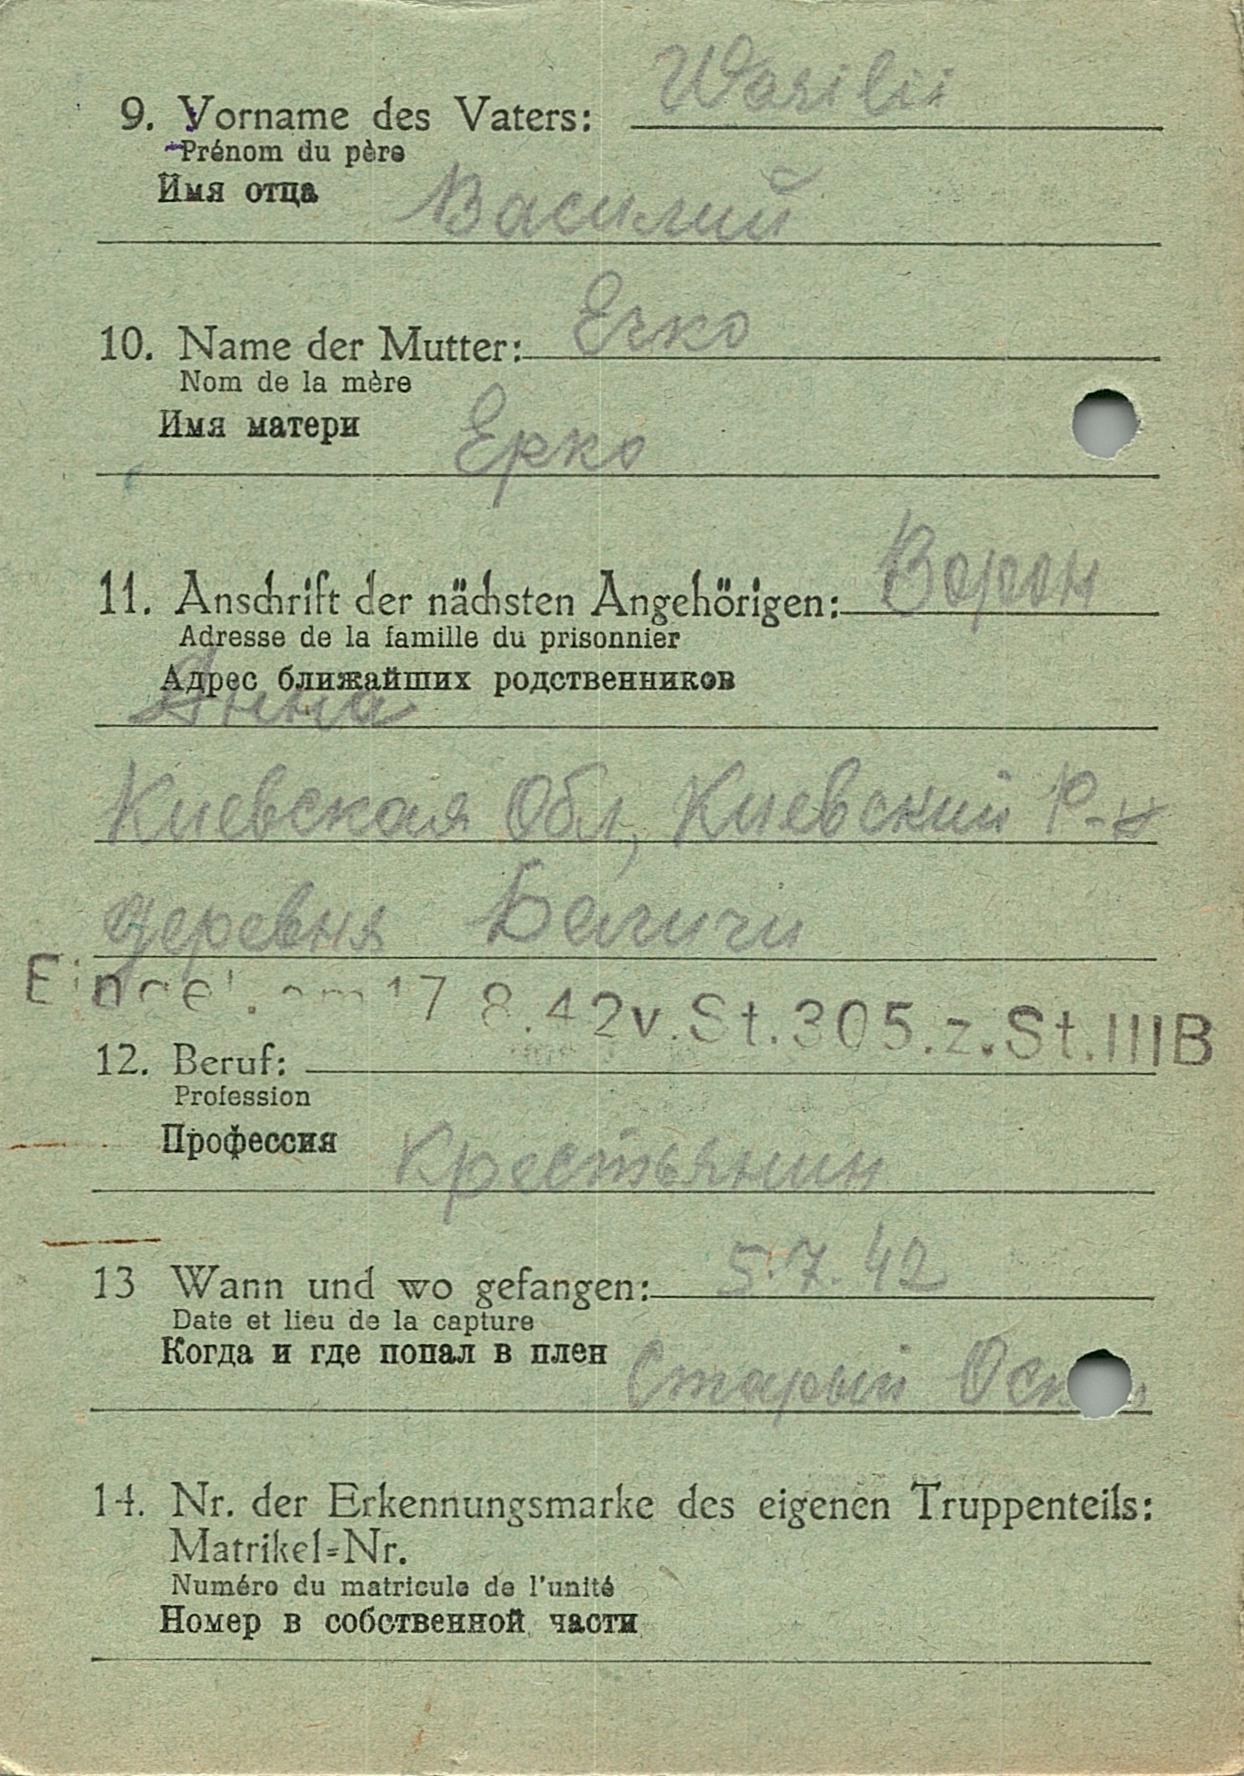 9. Vorname des Vaters: Wasilii
Prénom du père
Имя отца Василий
10. Name der Mutter: Erko
Nom de la mère
Имя матери Ерко
11. Anschrift der nächsten Angehörigen: Ворон
Adresse de la famille du prisonnier
Адрес ближайших родственников
Анна
Киевская Обл, Киевский Р-н
деревня Беличи
Eingel. am 17 8.42 v. St. 305. z. St. IIIB
12. Beruf:
Profession
Профессия Крестьянин
13 Wann und wo gefangen: 5.7.42
Date et lieu de la capture
Когда и где попал в плен Старый
14. Nr. der Erkennungsmarke des eigenen Truppenteils:
Matrikel=Nr.
Numéro du matricule de l'unité
Номер в собственной части